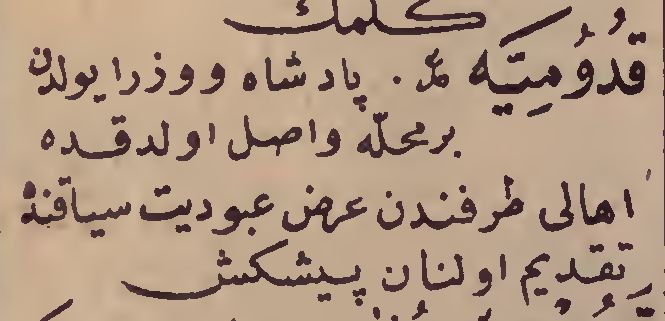 كلمك
قُدُومِيَّه مر. پادشاه ووزرا یولدن
بر محلّه واصل اولدقده
اهالی طرفندن عرض عبودیت سیاقنده
تقدیم اولنان پیشکش